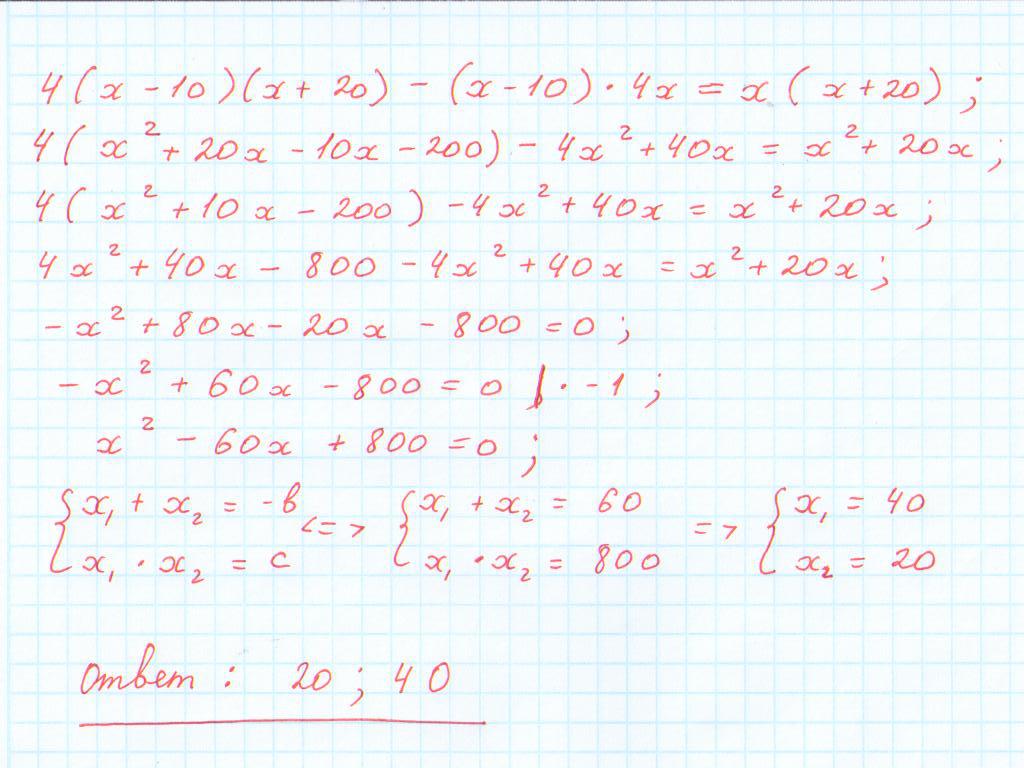 4(x - 10)(x + 20) - (x - 10) · 4x = x(x + 20);
4(x² + 20x - 10x - 200) - 4x² + 40x = x² + 20x;
4(x² + 10x - 200) - 4x² + 40x = x² + 20x;
4x² + 40x - 800 - 4x² + 40x = x² + 20x;
-x² + 80x - 20x - 800 = 0;
-x² + 60x - 800 = 0 | · -1;
x² - 60x + 800 = 0;
{ x₁ + x₂ = -в <=> { x₁ + x₂ = 60 => { x₁ = 40
x₁ · x₂ = c x₁ · x₂ = 800 x₂ = 20
Ответ: 20; 40